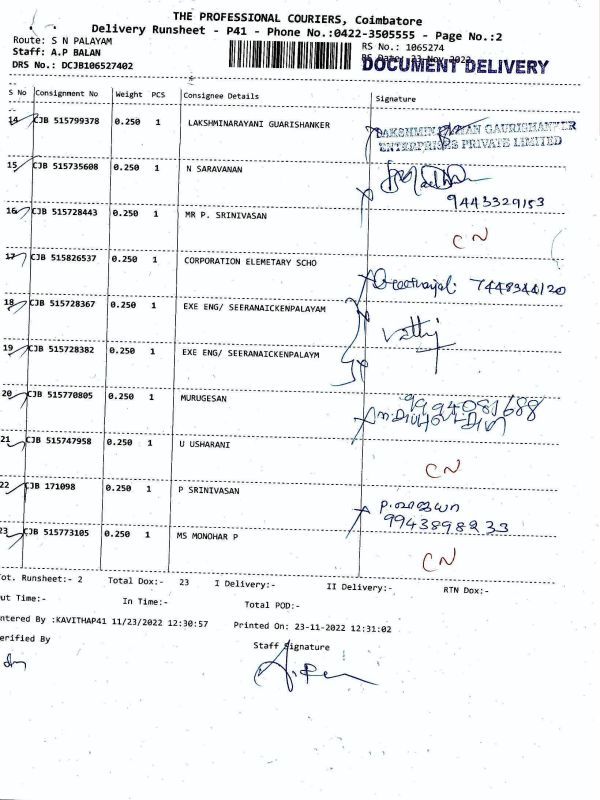 THE PROFESSIONAL COURIERS, Coimbatore
Delivery Runsheet - P41 - Phone No.:0422-3505555 - Page No.:2
Route: S N PALAYAM
Staff: A.P BALAN
DRS No.: DCJB106527402
RS No.: 1065274
DOCUMENT DELIVERY
S No Consignment No Weight PCS Consignee Details Signature
14 CJB 515799378 0.250 1 LAKSHMINARAYANI GUARISHANKER
GAURISHANKER
ENTERPRISES PRIVATE LIMITED
15 CJB 515735608 0.250 1 N SARAVANAN
9443329153
16 CJB 515728443 0.250 1 MR P. SRINIVASAN
CN
17 CJB 515826537 0.250 1 CORPORATION ELEMETARY SCHO
7448344120
18 CJB 515728367 0.250 1 EXE ENG/ SEERANAICKENPALAYAM
19 CJB 515728382 0.250 1 EXE ENG/ SEERANAICKENPALAYM
20 CJB 515770805 0.250 1 MURUGESAN
9994081688
21 CJB 515747958 0.250 1 U USHARANI
CN
22 CJB 171098 0.250 1 P SRINIVASAN
9943898233
23 CJB 515773105 0.250 1 MS MONOHAR P
CN
ot. Runsheet:- 2 Total Dox:- 23 I Delivery:- II Delivery:- RTN Dox:-
ut Time:- In Time:- Total POD:-
ntered By :KAVITHAP41 11/23/2022 12:30:57 Printed On: 23-11-2022 12:31:02
erified By Staff Signature